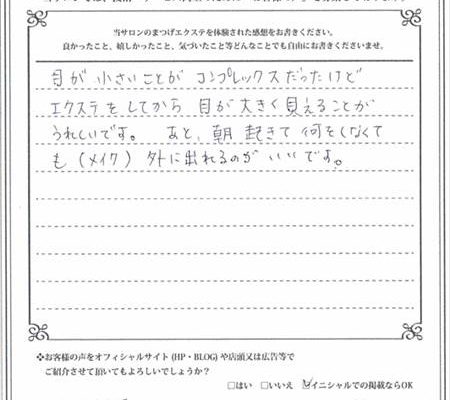 当サロンのまつげエクステを体験された感想をお書きください。
良かったこと、嬉しかったこと、気づいたこと等どんなことでも自由にお書きくださいませ。
目が小さいことがコンプレックスだったけど
エクステをしてから目が大きく見えることが
うれしいです。 あと、朝起きて何をしなくて
も(メイク)外に出れるのがいいです。
❖お客様の声をオフィシャルサイト(HP・BLOG)や店頭又は広告等で
ご紹介させて頂いてもよろしいでしょうか?
□はい □いいえ ☑イニシャルでの掲載ならOK